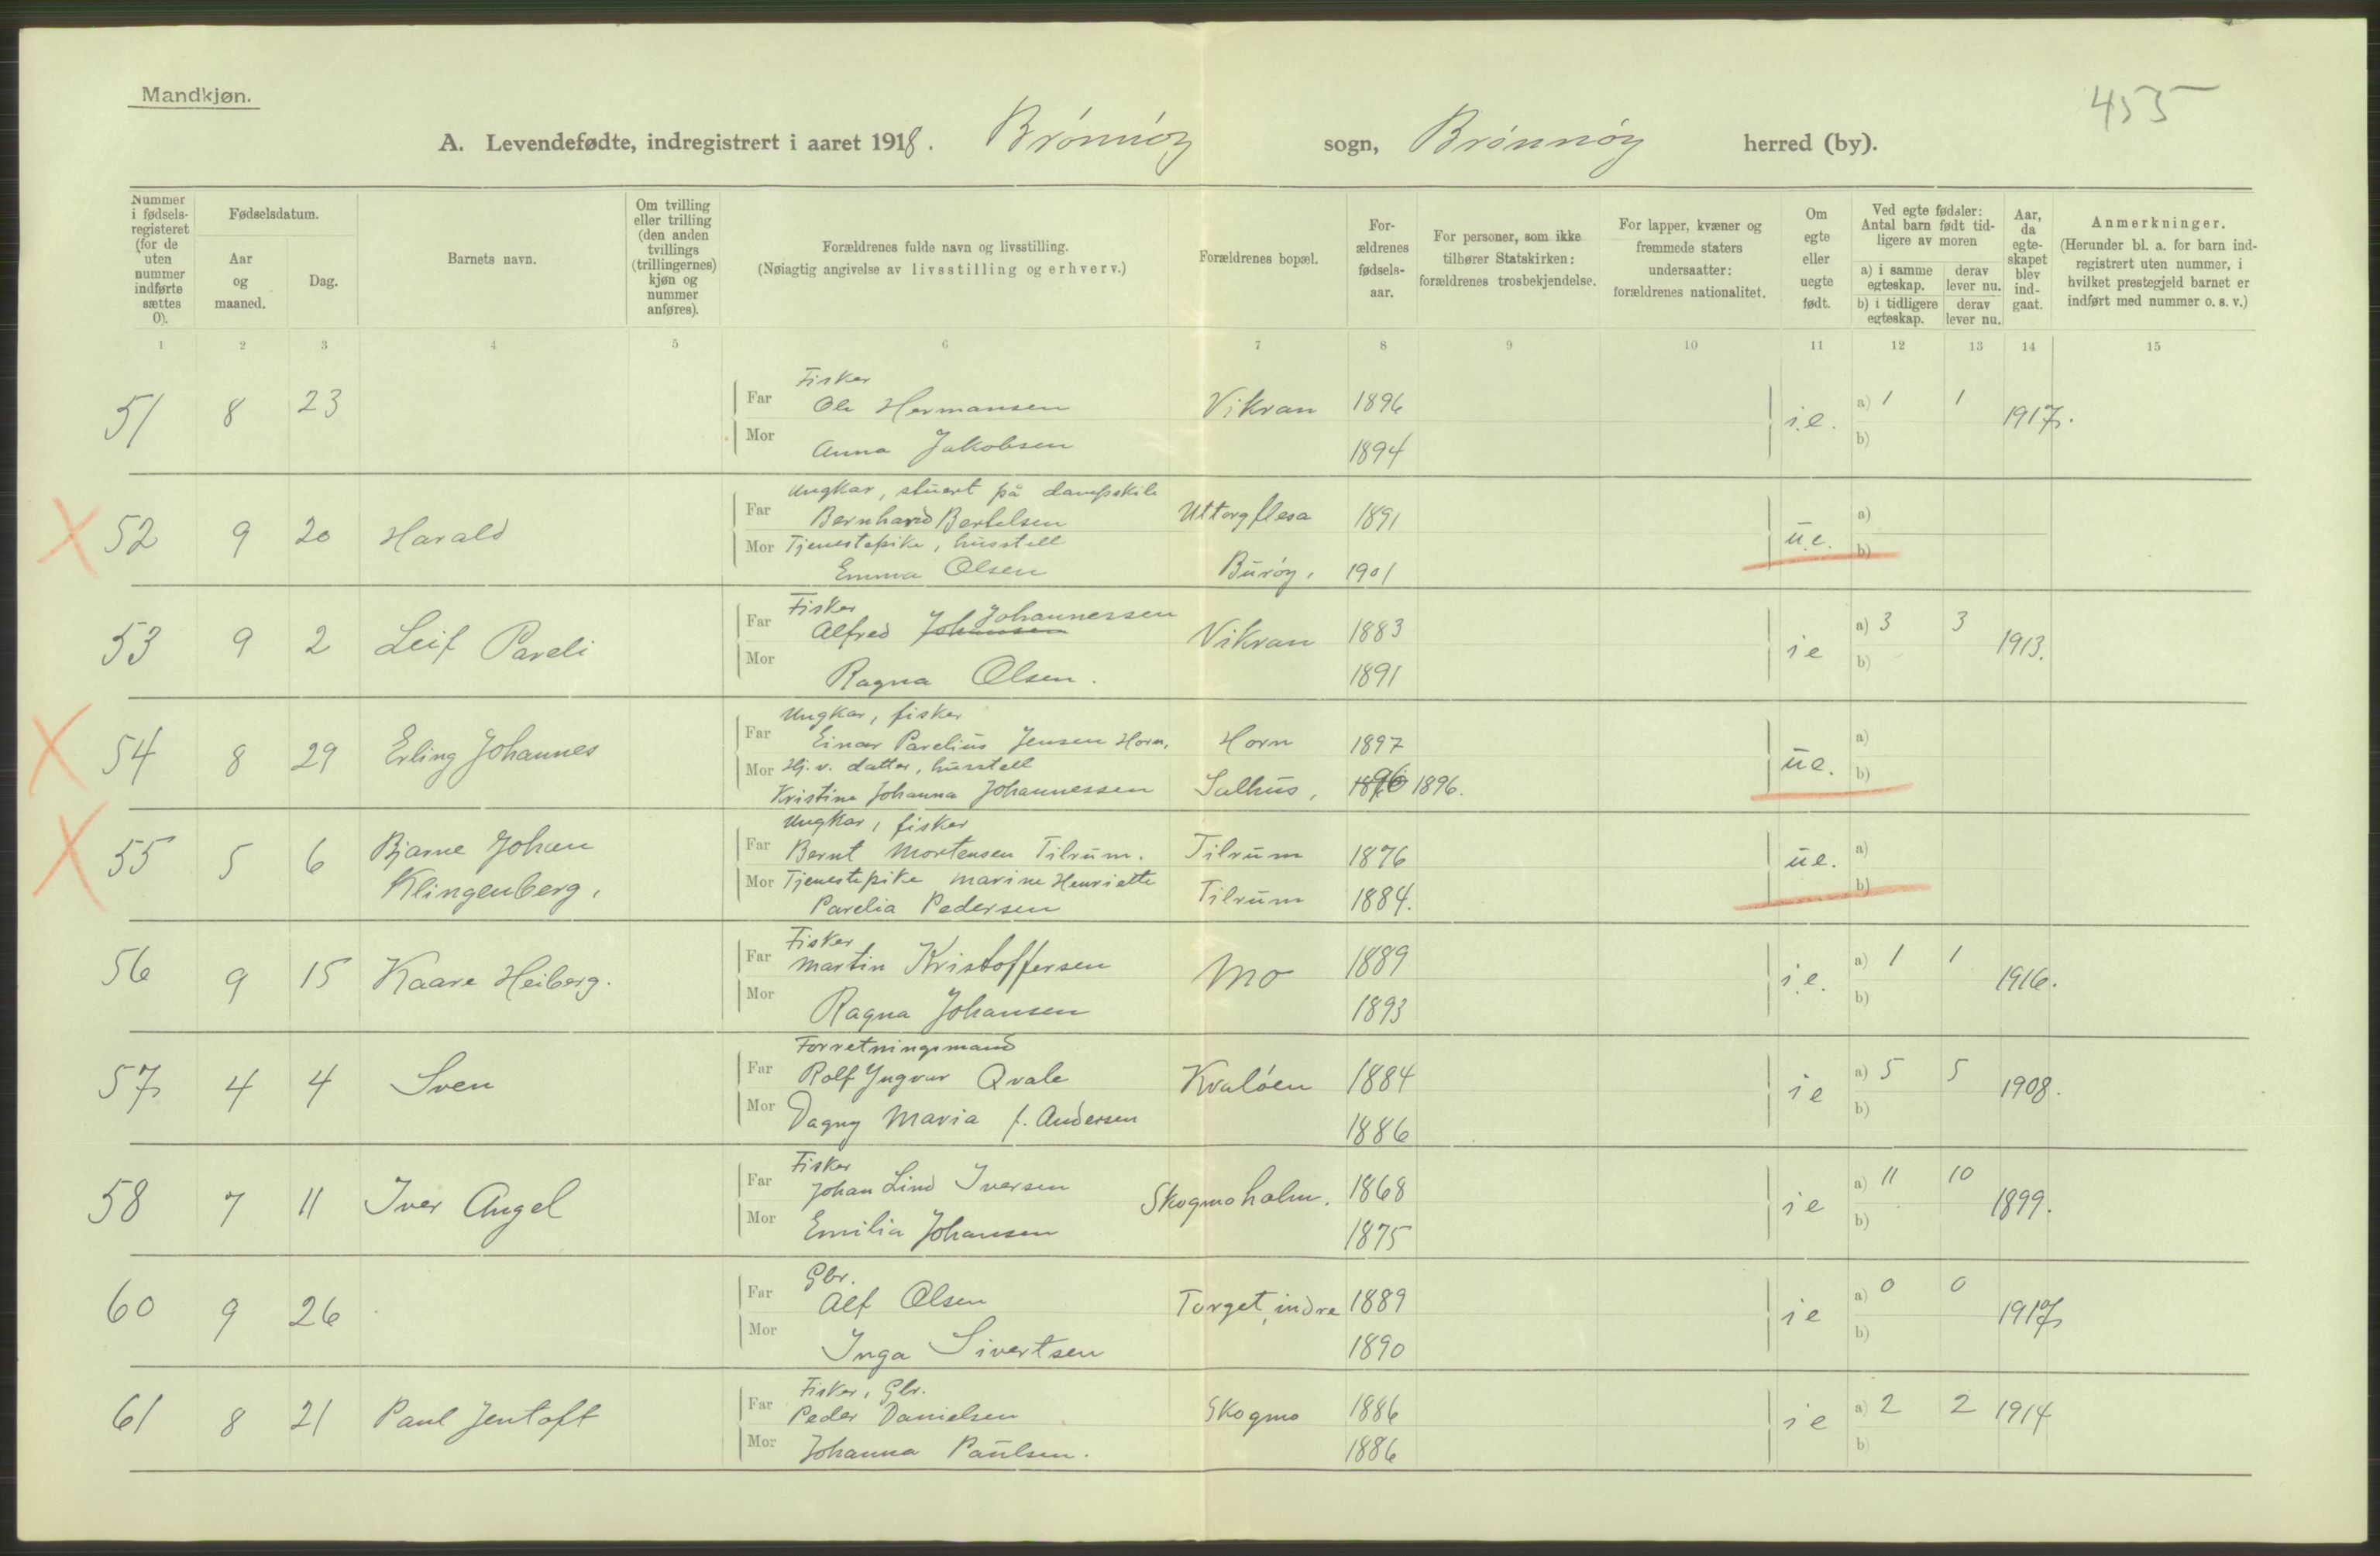 Mandkjøn.
455
A. Levendefødte, indregistrert i aaret 1918. Brönnöy sogn, Brönnöy herred (by).
Nummer i fødsels-registeret (for de uten nummer indførte sættes 0).
Fødselsdatum.
Aar og maaned.
Dag.
Barnets navn.
Om tvilling eller trilling (den anden tvillings (trillingernes) kjøn og nummer anføres).
Forældrenes fulde navn og livsstilling.
(Nøiagtig angivelse av livsstilling og erhverv.)
Forældrenes bopæl.
For-ældrenes fødsels-aar.
For personer, som ikke tilhører Statskirken: forældrenes trosbekjendelse.
For lapper, kvæner og fremmede staters undersaatter: forældrenes nationalitet.
Om egte eller uegte født.
Ved egte fødsler: Antal barn født tid-ligere av moren
a) i samme egteskap.
derav lever nu.
b) i tidligere egteskap.
derav lever nu.
Aar, da egte-skapet blev ind-gaat.
Anmerkninger.
(Herunder bl. a. for barn ind-registrert uten nummer, i hvilket prestegjeld barnet er indført med nummer o. s. v.)
1 2 3 4 5 6 7 8 9 10 11 12 13 14 15
Fisker
51 8 23 Far Ole Hermansen Vikran 1896 i.e. a) 1 1 1917.
Mor Anna Jakobsen 1894 b)
Ungkar, stuert på dampskib
X 52 9 20 Harald Far Bernhard Bertelsen Uttorgflesa 1891 ü.e. a)
Mor Tjenestepike, husstell b)
Emma Olsen Buröy, 1901
Fisker
53 9 2 Leif Pareli Far Alfred Johansen Johannessen Vikran 1883 ie a) 3 3 1913.
Mor Ragna Olsen. 1891 b)
Ungkar, fisker
X 54 8 29 Erling Johannes Far Einar Parelius Jensen Horn, Horn 1897 üe. a)
Mor Hj. v. datter, husstell b)
Kristine Johanna Johannessen Salhus, 1896 1896.
Ungkar, fisker
X 55 5 6 Bjarne Johan Klingenberg, Far Bernt Mortensen Tilrum. Tilrum 1876 üe. a)
Mor Tjenestepike Marine Henriette b)
Parelia Pedersen Tilrum 1884.
Fisker
56 9 15 Kaare Heiberg. Far Martin Kristoffersen Mo 1889 i.e. a) 1 1 1916.
Mor Ragna Johansen 1893 b)
Forretningsmand
57 4 4 Sven Far Rolf Yngvar Qvale Kvalöen 1884 ie a) 5 5 1908.
Mor Dagny Maria f. Andersen 1886 b)
Fisker
58 7 11 Iver Angel Far Johan Lind Iversen Skogmoholm. 1868 ie a) 11 10 1899.
Mor Emilia Johansen 1875 b)
Gbr.
60 9 26 Far Alf Olsen Torget, indre 1889 ie a) 0 0 1917
Mor Inga Sivertsen 1890 b)
Fisker, Gbr.
61 8 21 Paul Jentoft Far Peder Danielsen Skogmo 1886 ie a) 2 2 1914
Mor Johanna Paulsen. 1886 b)